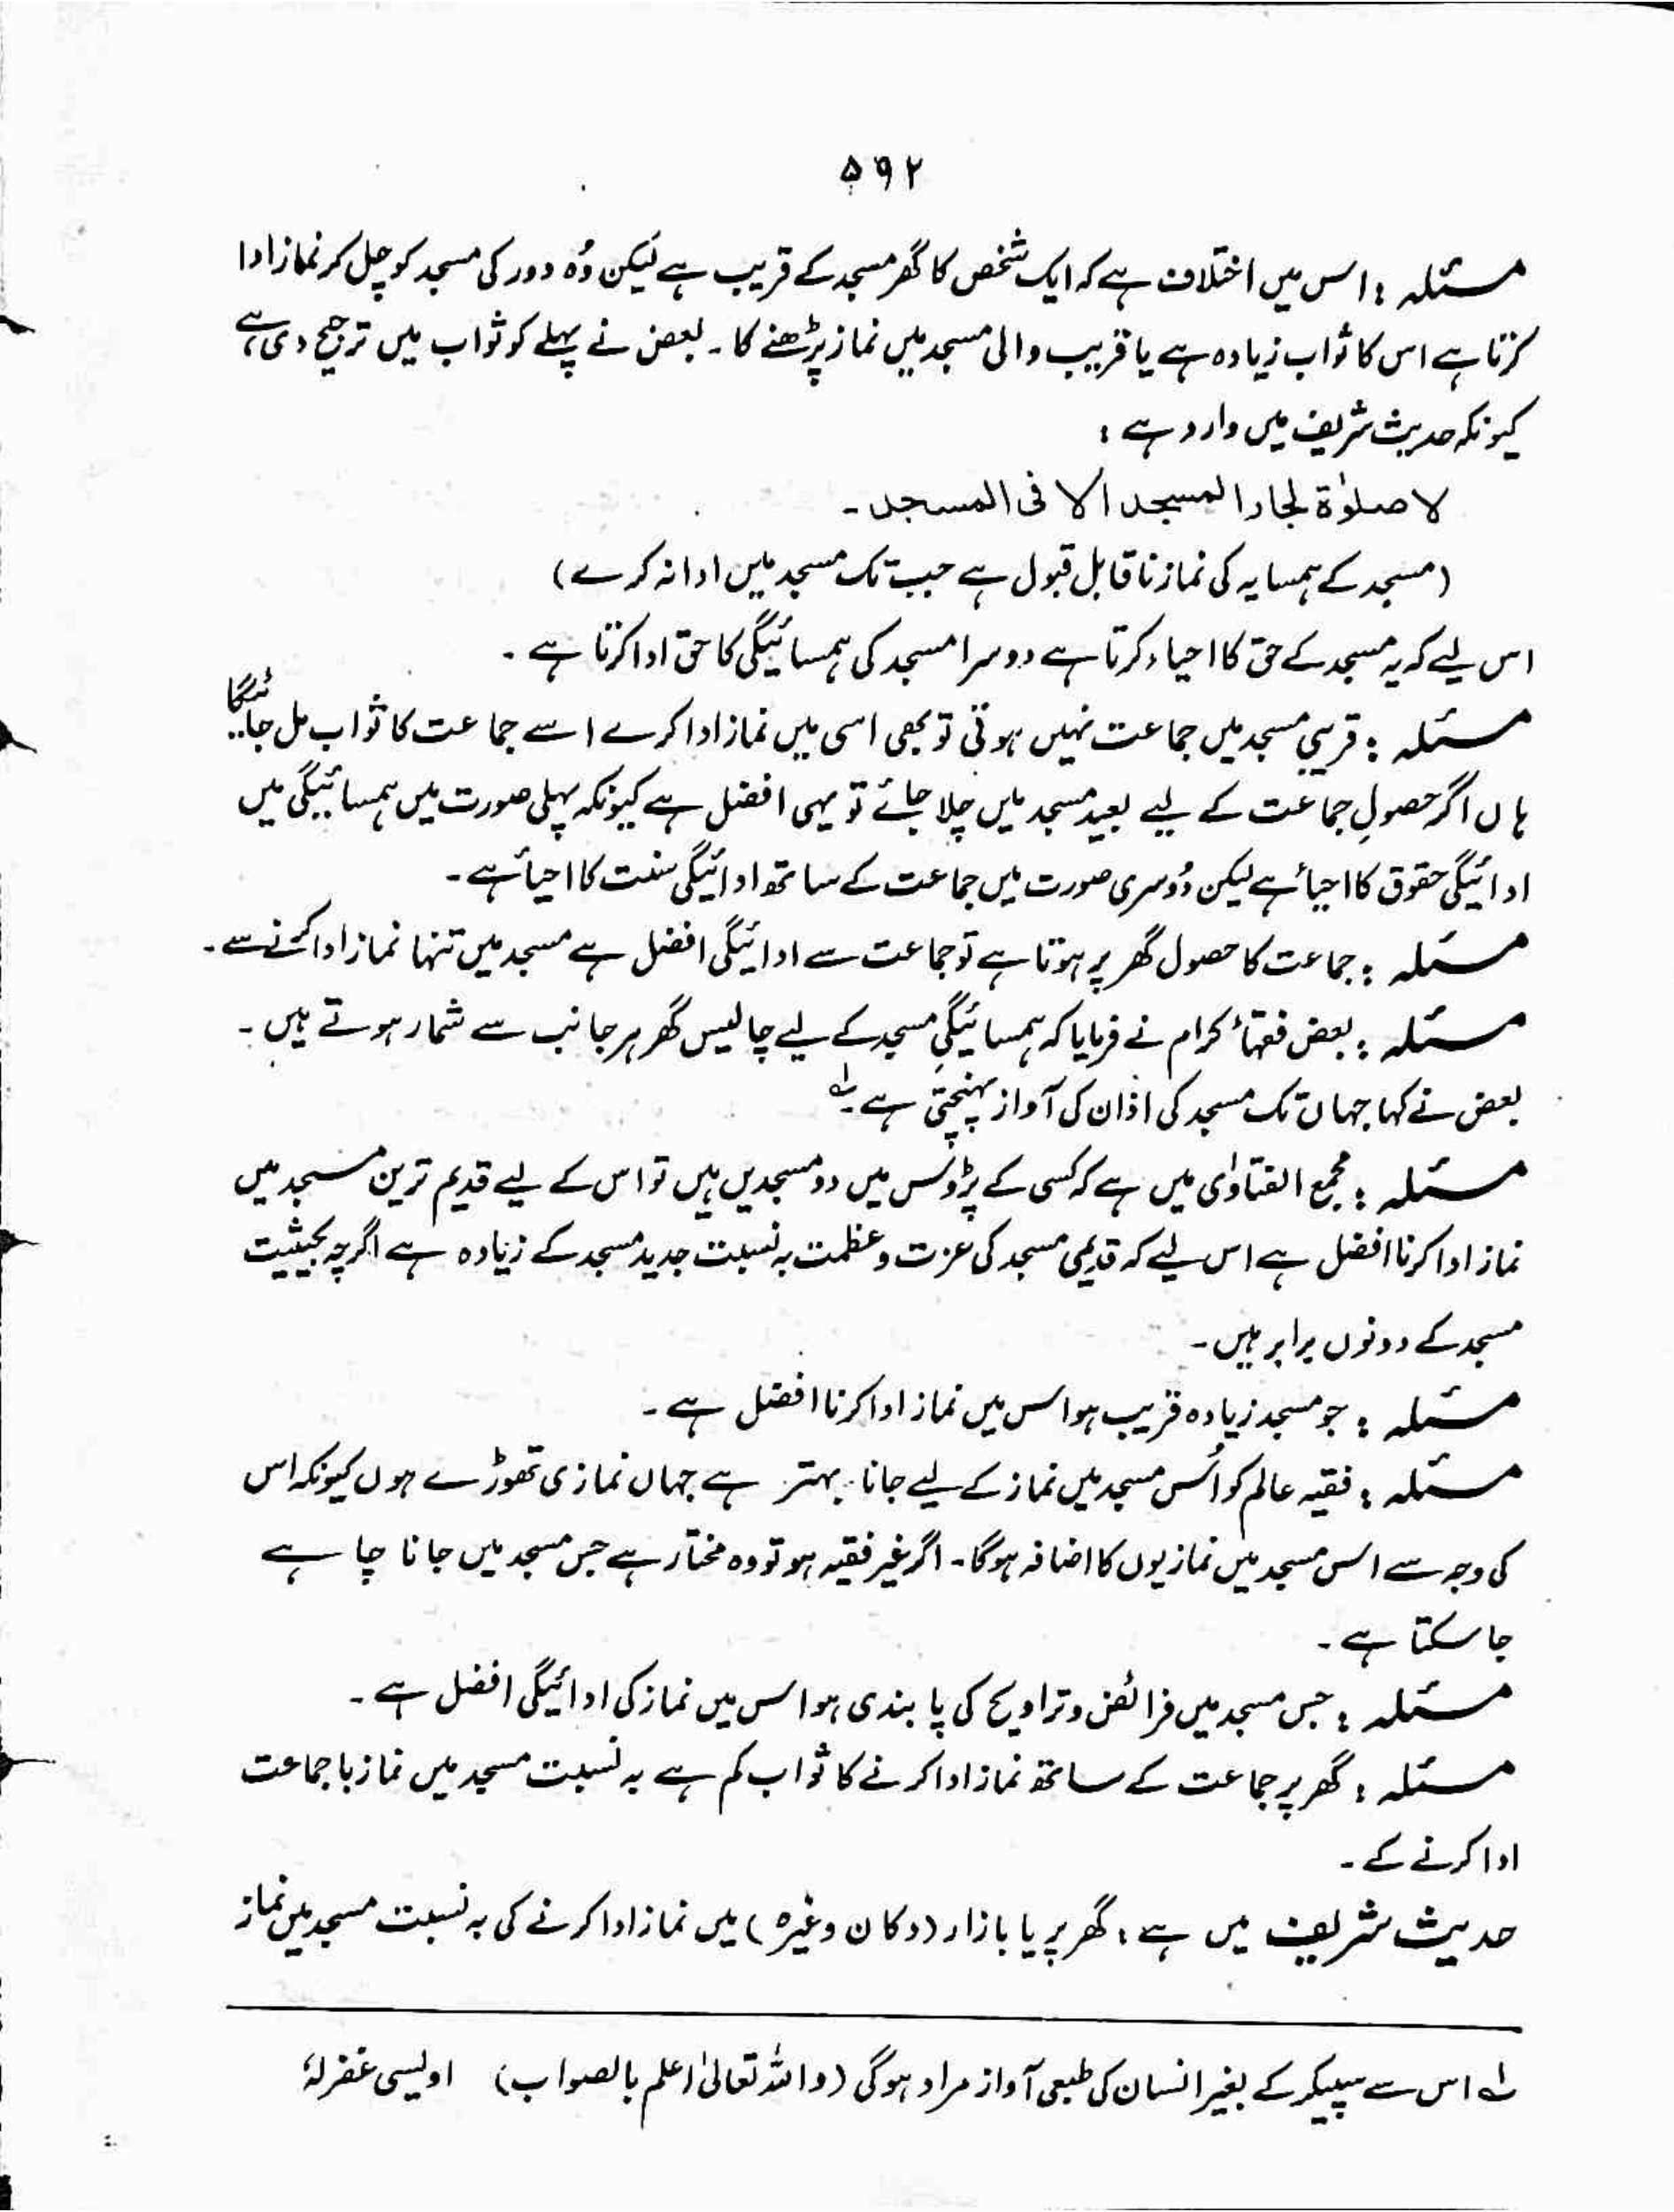 ۵۹۲
مسئلہ : اس میں اختلاف ہے کہ ایک شخص کا گھر مسجد کے قریب ہے لیکن وُہ دور کی مسجد کو چل کر نماز ادا
کرتا ہے اس کا ثواب زیادہ ہے یا قریب والی مسجد میں نماز پڑھنے کا ۔ بعض نے پہلے کو ثواب میں ترجیح دی ہے
کیونکہ حدیث شریف میں وارد ہے :
لا صلوٰة لجار المسجد الا فی المسجد ۔
(مسجد کے ہمسایہ کی نماز ناقابل قبول ہے جب تک مسجد میں ادا نہ کرے)
اس لیے کہ یہ مسجد کے حق کا احیاء کرتا ہے دوسرا مسجد کی ہمسائیگی کا حق ادا کرتا ہے ۔
مسئلہ : قریبی مسجد میں جماعت نہیں ہوتی تو بھی اسی میں نماز ادا کرے اسے جماعت کا ثواب مل جائیگا
ہاں اگر حصولِ جماعت کے لیے بعید مسجد میں چلا جائے تو یہی افضل ہے کیونکہ پہلی صورت میں ہمسائیگی میں
ادائیگی حقوق کا احیأ ہے لیکن دُوسری صورت میں جماعت کے ساتھ ادائیگی سنت کا احیأ ہے ۔
مسئلہ : جماعت کا حصول گھر پر ہوتا ہے تو جماعت سے ادائیگی افضل ہے مسجد میں تنہا نماز ادا کرنے سے ۔
مسئلہ : بعض فقہأ کرام نے فرمایا کہ ہمسائیگیِ مسجد کے لیے چالیس گھر ہر جانب سے شمار ہوتے ہیں ۔
بعض نے کہا جہاں تک مسجد کی اذان کی آواز پہنچتی ہے ۔ لہ
مسئلہ : مجمع الفتاوٰی میں ہے کہ کسی کے پڑوس میں دو مسجدیں ہیں تو اس کے لیے قدیم ترین مسجد میں
نماز ادا کرنا افضل ہے اس لیے کہ قدیمی مسجد کی عزت و عظمت بہ نسبت جدید مسجد کے زیادہ ہے اگرچہ بحیثیت
مسجد کے دونوں برابر ہیں ۔
مسئلہ : جو مسجد زیادہ قریب ہو اس میں نماز ادا کرنا افضل ہے ۔
مسئلہ : فقیہ عالم کو اُس مسجد میں نماز کے لیے جانا بہتر ہے جہاں نمازی تھوڑے ہوں کیونکہ اس
کی وجہ سے اس مسجد میں نمازیوں کا اضافہ ہوگا ۔ اگر غیر فقیہ ہو تو وہ مختار ہے جس مسجد میں جانا چاہے
جا سکتا ہے ۔
مسئلہ : جس مسجد میں فرائض و تراویح کی پابندی ہو اس میں نماز کی ادائیگی افضل ہے ۔
مسئلہ : گھر پر جماعت کے ساتھ نماز ادا کرنے کا ثواب کم ہے بہ نسبت مسجد میں نماز با جماعت
ادا کرنے کے ۔
حدیث شریف میں ہے : گھر پر یا بازار (دکان وغیرہ) میں نماز ادا کرنے کی بہ نسبت مسجد میں نماز
لہ اس سے سپیکر کے بغیر انسان کی طبعی آواز مراد ہوگی (واللہ تعالیٰ اعلم بالصواب) اویسی غفرلہٗ